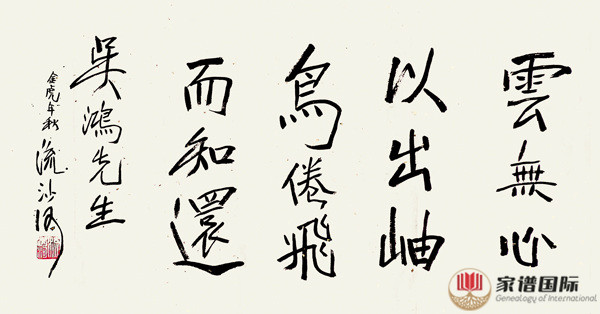 雲無心
以出岫
鳥倦飛
而知還
吳鴻先生
金虎年秋
流沙河
家谱国际
Genealogy of International